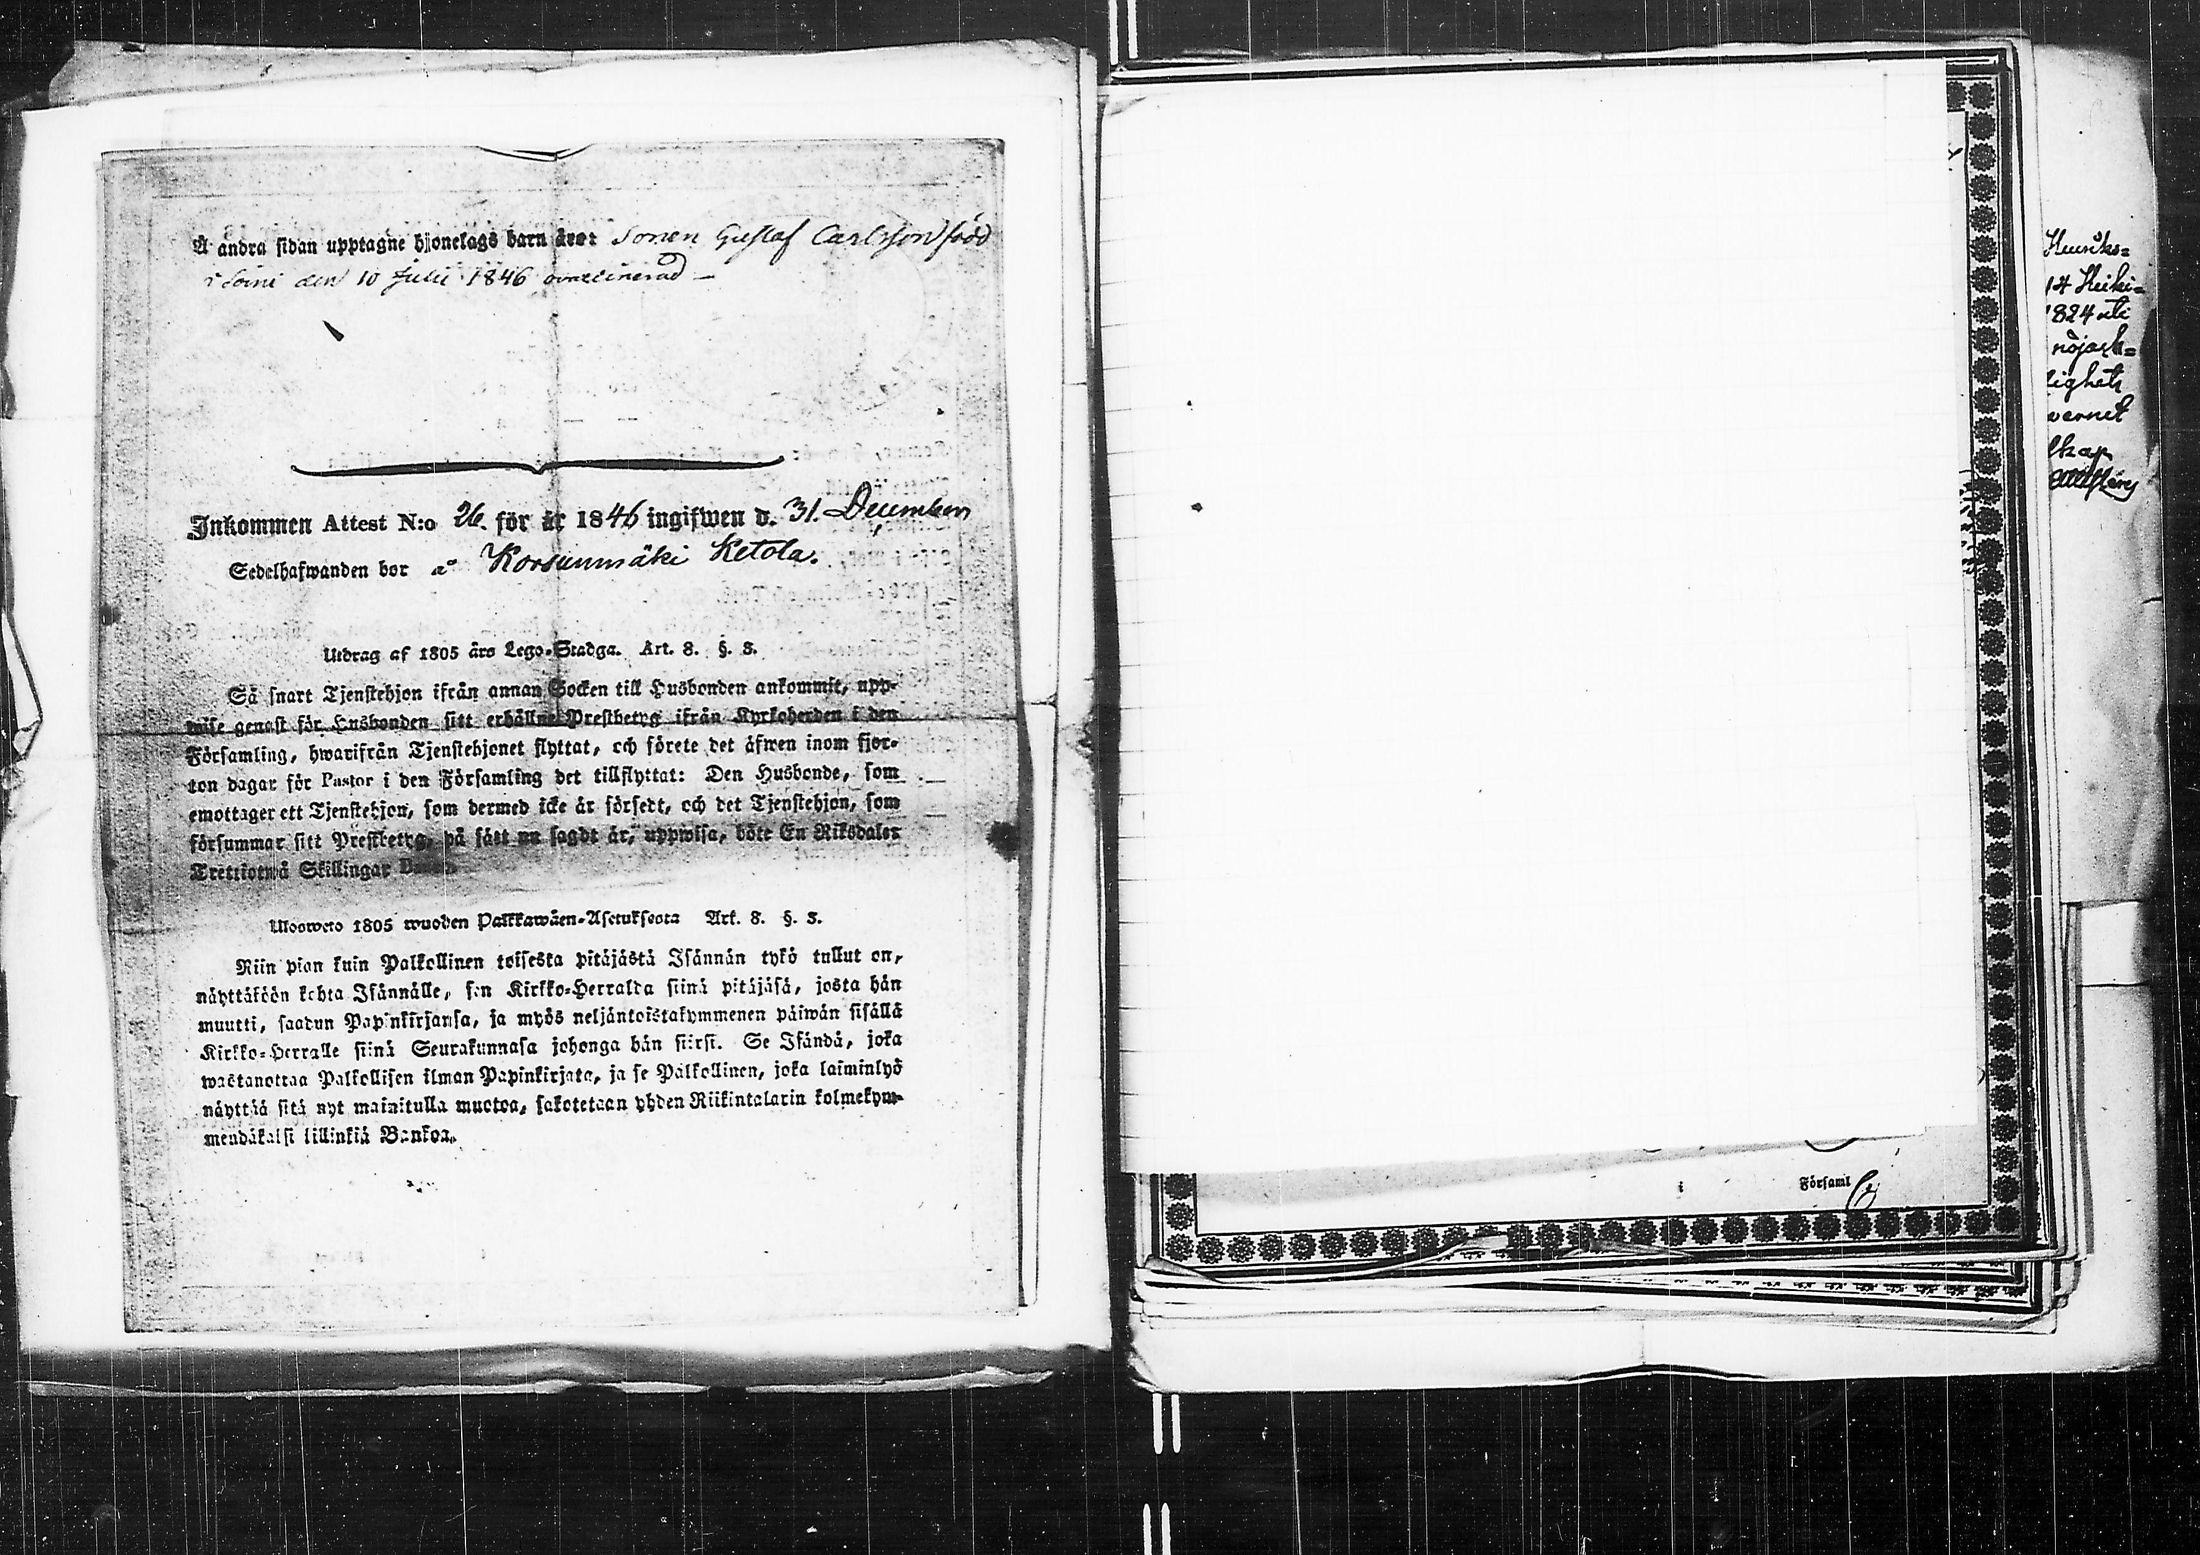 Å andra sidan upptagne hjonelags barn äro: Sonen Gustaf Carlsson född
i Soini den 10 Julii 1846 ovaccinerad —
Inkommen Attest N:o 26. för år 1846 ingifwen d. 31. December
Sedelhafwanden bor å Korsunmäki Ketola.
Utdrag af 1805 års Lego-Stadga. Art. 8. §. 3.
Så snart Tjenstehjon ifrån annan Socken till Husbonden ankommit, upp-
wise genast för Husbonden sitt erhållne Prestbetyg ifrån Kyrkoherden i den
Församling, hwarifrån Tjenstehjonet flyttat, och förete det äfwen inom fjor-
ton dagar för Pastor i den Församling det tillflyttat: Den Husbonde, som
emottager ett Tjenstehjon, som dermed icke är försedt, och det Tjenstehjon, som
försummar sitt Prestbetyg, på sätt nu sagdt är, uppwisa, böte En Riksdaler
Trettiotwå Skillingar
Ulosweto 1805 wuoden Palkkawäen-Asetuksesta Art. 8. §. 3.
Niin pian kuin Palkollinen toisesta pitäjästä Isännän tykö tullut on,
näyttäköön kohta Isännälle, sen Kirkko-Herralda siinä pitäjäsä, josta hän
muutti, saadun Papinkirjansa, ja myös neljäntoistakymmenen päiwän sisällä
Kirkko-Herralle siinä Seurakunnasa johonga hän siirsi. Se Isändä, joka
wastanottaa Palkollisen ilman Papinkirjata, ja se Palkollinen, joka laiminlyö
näyttää sitä nyt mainitulla muotoa, sakotetaan yhden Riikintalarin kolmekym-
mendäkaksi killinkiä Bankoa.
Henriks=
14 Heiki=
1824 uti
nöjack=
lighets
vernet
skap
Församl